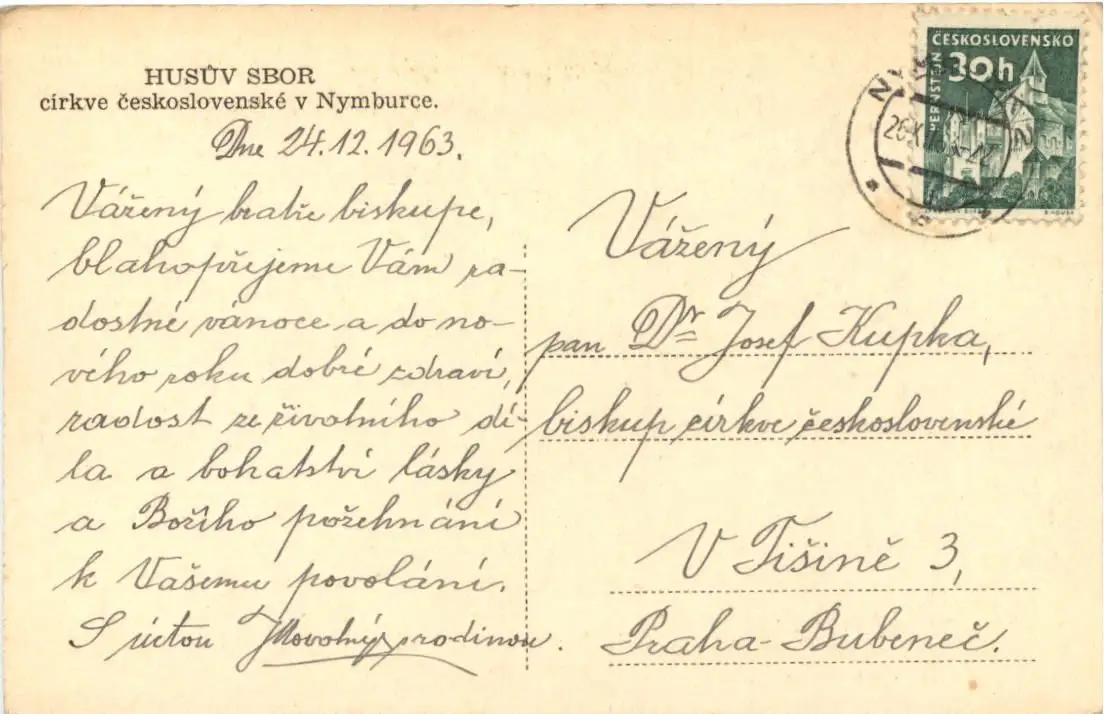 HUSŮV SBOR
církve československé v Nymburce.
Dne 24.12.1963.
Vážený bratře biskupe,
blahopřejeme Vám ra-
dostné vánoce a do no-
vého roku dobré zdraví,
radost ze životního dí-
la a bohatství lásky
a Božího požehnání
k Vašemu povolání.
S úctou JNovotný s rodinou.
ČESKOSLOVENSKO
30h
PERNŠTEJN
Vážený
pan Dr Josef Kupka,
biskup církve československé
V Tišině 3,
Praha-Bubeneč.